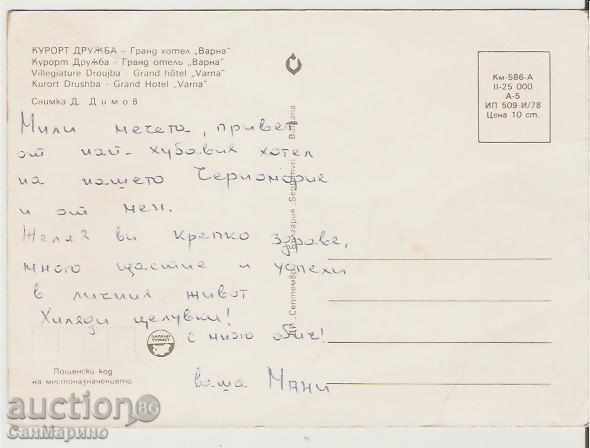 КУРОРТ ДРУЖБА - Гранд хотел „Варна"
Курорт Дружба - Гранд отель „Варна"
Villegiature Droujba - Grand hôtel „Varna"
Kurort Drushba - Grand Hotel „Varna"
Снимка Д. Димов
Км-586-А
II-25 000
А-5
ИП 509 И/78
Цена 10 ст.
Мили мечета, привет
от най-хубавия хотел
на нашето Черноморие
и от мен.
Желая ви крепко здраве,
много щастие и успехи
в личния живот
Хиляди целувки!
с много обич!
ваша Мани
Септември
Пощенски код
на местоназначението
auction BG
СанМарино